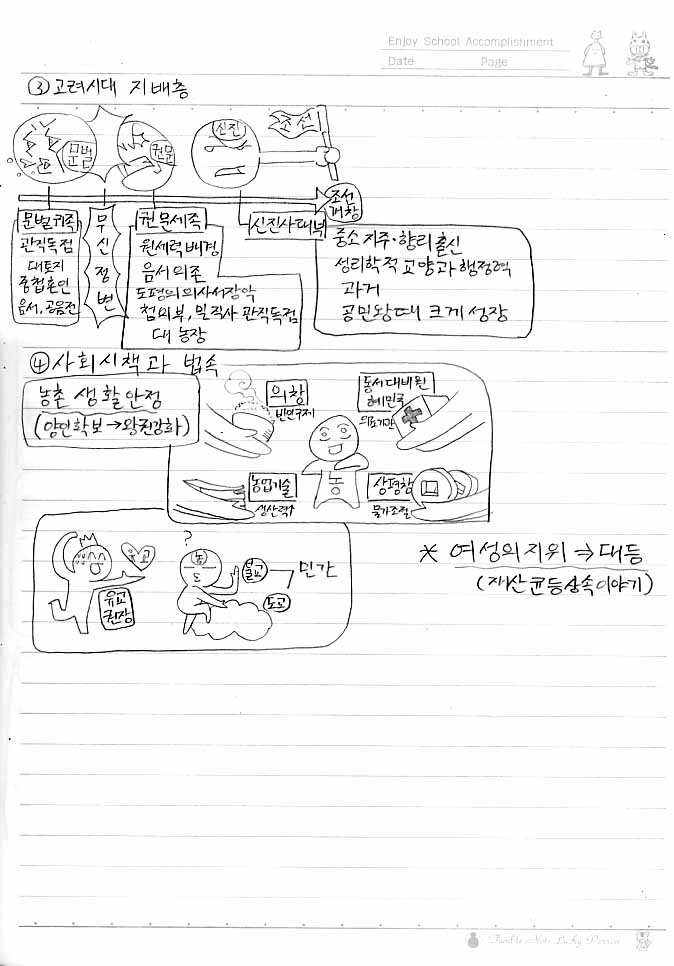 Enjoy School Accomplishment
Date Page
③ 고려시대 지배층
문벌
권문
신진
조선
조선
개창
문벌귀족
관직독점
대토지
중첩혼인
음서, 공음전
무신정변
권문세족
원세력배경
음서의존
도평의사사장악
첨의부, 밀직사 관직독점
대농장
신진사대부
중소지주·향리출신
성리학적 교양과 행정력
과거
공민왕때 크게 성장
④ 사회시책과 법속
농촌 생활안정
(양인확보→왕권강화)
의창
빈민구제
동서대비원
혜민국
의료기관
농
농업기술
생산력↑
상평창
물가조절
유교
유교
권장
?
농
불교
도교
민간
* 여성의 지위 ⇒ 대등
(재산균등상속이야기)
Tumble Note Lucky Person